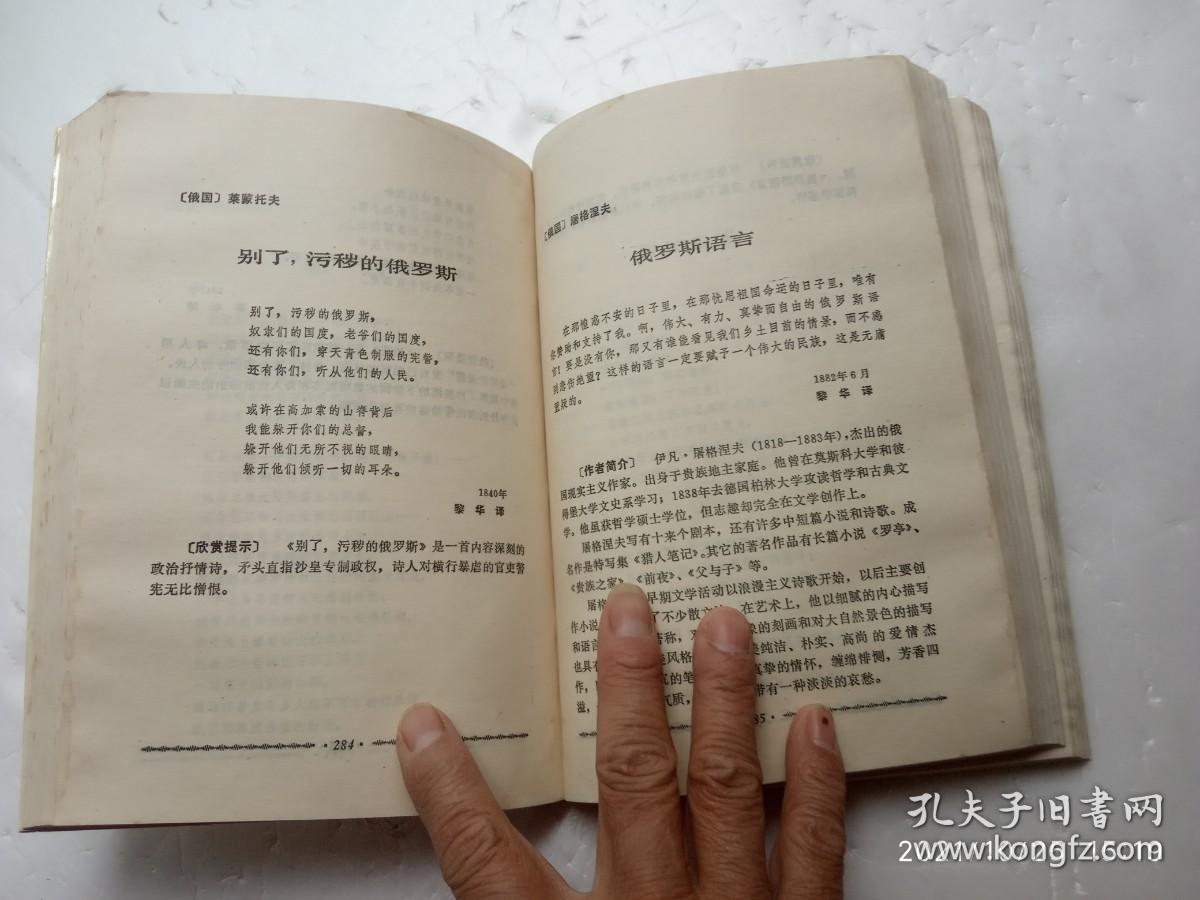 〔俄国〕莱蒙托夫
别了，污秽的俄罗斯
别了，污秽的俄罗斯，
奴隶们的国度，老爷们的国度，
还有你们，穿天青色制服的宪警，
还有你们，听从他们的人民。
或许在高加索的山脊背后
我能躲开你们的总督，
躲开他们无所不视的眼睛，
躲开他们倾听一切的耳朵。
1840年
黎华译
〔欣赏提示〕 《别了，污秽的俄罗斯》是一首内容深刻的
政治抒情诗，矛头直指沙皇专制政权，诗人对横行暴虐的官吏警
宪无比憎恨。
·284·
〔俄国〕屠格涅夫
俄罗斯语言
在那惶惑不安的日子里，在那忧思祖国命运的日子里，唯有
你赞助和支持了我。啊，伟大、有力、真挚而自由的俄罗斯语
言！要是没有你，那又有谁能看见我们乡土目前的情景，而不感
到悲伤绝望？这样的语言一定要赋予一个伟大的民族，这是无庸
置疑的。
1882年6月
黎华译
〔作者简介〕 伊凡·屠格涅夫（1818—1883年），杰出的俄
国现实主义作家。出身于贵族地主家庭。他曾在莫斯科大学和彼
得堡大学文史系学习；1838年去德国柏林大学攻读哲学和古典文
学。他虽获哲学硕士学位，但志趣却完全在文学创作上。
屠格涅夫写有十来个剧本，还有许多中短篇小说和诗歌。成
名作是特写集《猎人笔记》。其它的著名作品有长篇小说《罗亭》、
《贵族之家》、《前夜》、《父与子》等。
屠格 早期文学活动以浪漫主义诗歌开始，以后主要创
作小说 了不少散文 在艺术上，他以细腻的内心描写
和语言 著称， 的刻画和对大自然景色的描写
也具有 风格 纯洁、朴实、高尚的爱情杰
作， 的笔 真挚的情怀，缠绵悱恻，芳香四
溢， 气质， 带有一种淡淡的哀愁。
85·
孔夫子旧书网
www.kongfz.com
2021·10/25 15:19